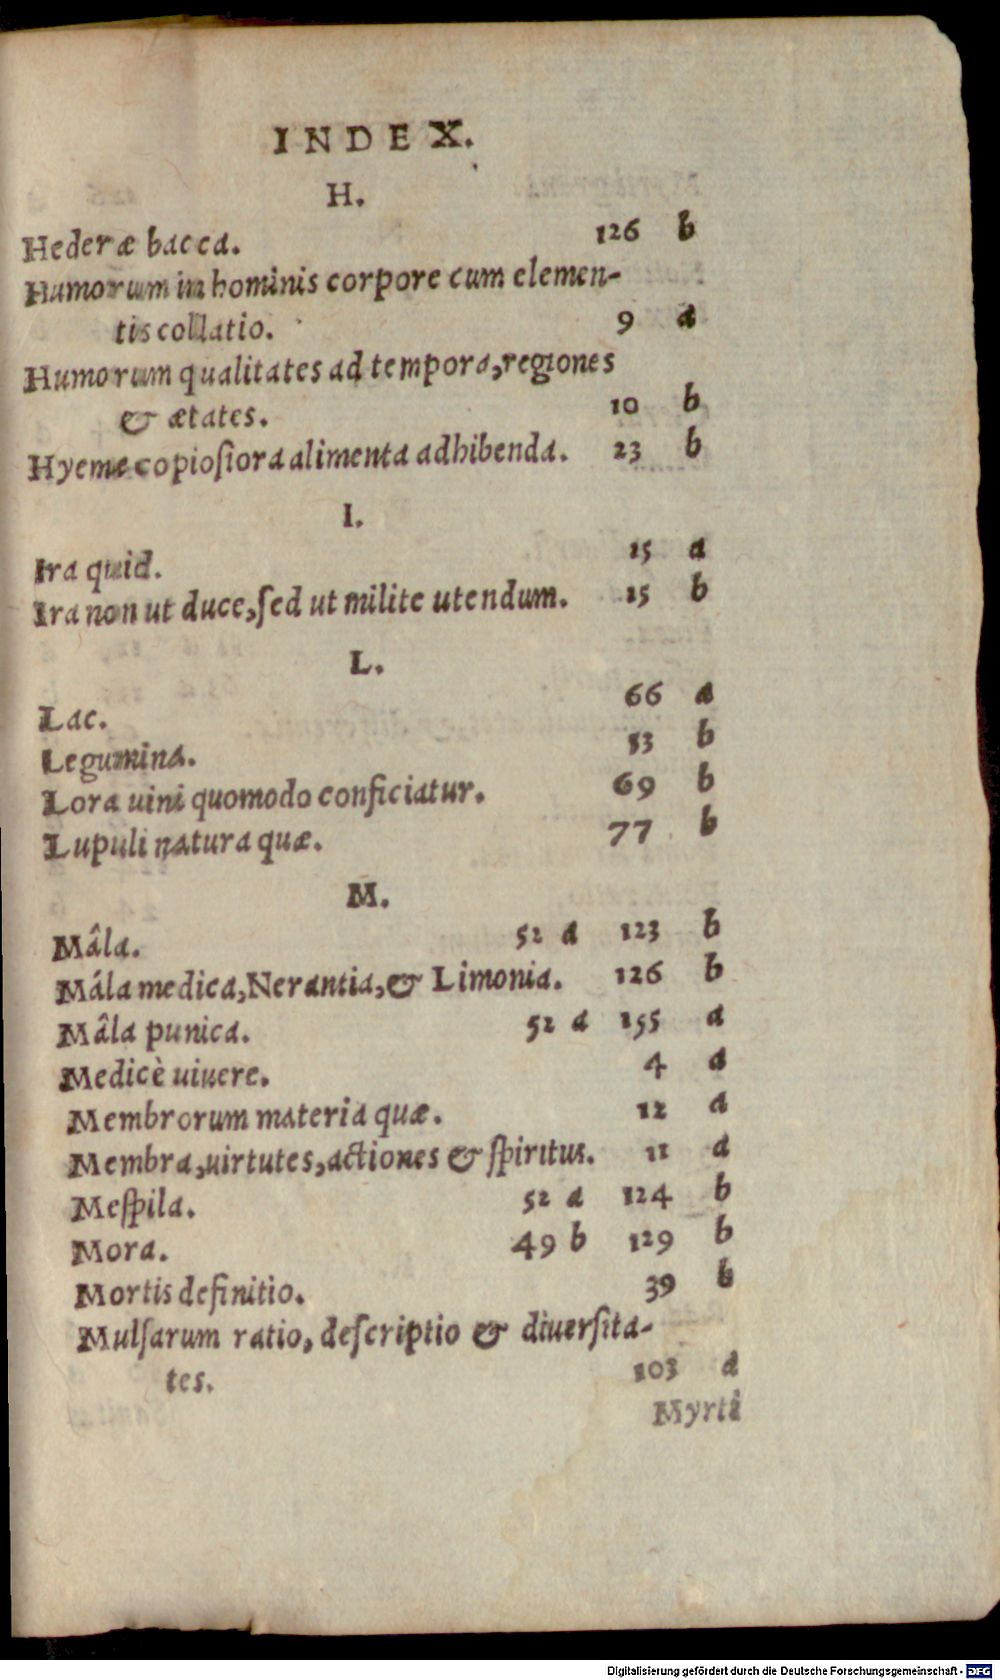 INDEX.
H.
Hederæ bacca. 126 b
Humorum in hominis corpore cum elemen-
tis collatio. 9 a
Humorum qualitates ad tempora, regiones
& ætates. 10 b
Hyeme copioſiora alimenta adhibenda. 23 b
I.
Ira quid. 15 a
Ira non ut duce, ſed ut milite utendum. 15 b
L.
Lac. 66 a
Legumina. 53 b
Lora uini quomodo conficiatur. 69 b
Lupuli natura quæ. 77 b
M.
Mâla. 52 a 123 b
Mála medica, Nerantia, & Limonia. 126 b
Mâla punica. 52 a 155 a
Medicè uiuere. 4 a
Membrorum materia quæ. 12 a
Membra, uirtutes, actiones & ſpiritus. 11 a
Meſpila. 52 a 124 b
Mora. 49 b 129 b
Mortis definitio. 39 b
Mulſarum ratio, deſcriptio & diuerſita-
tes. 103 a
Myrti
Digitalisierung gefördert durch die Deutsche Forschungsgemeinschaft - DFG